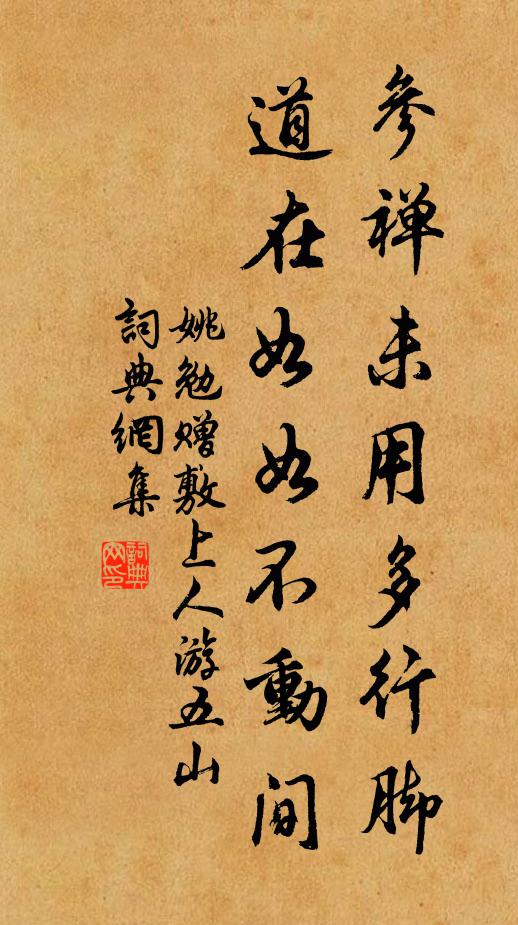 參禅未用多行脚
道在如如不動間
姚勉赠敷上人游五山
詞典網集
詞典网印